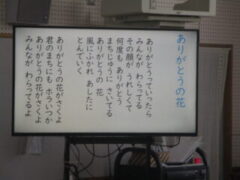 ありがとうの花
ありがとうっていったら
みんなが わらってる
その顔が うれしくて
何度も ありがとう
まちじゅうに さいてる
ありがとうの 花
風にふかれ あしたに
とんでいく
ありがとうの花がさくよ
君のまちにも ホラいつか
ありがとうの花がさくよ
みんなが わらってるよ